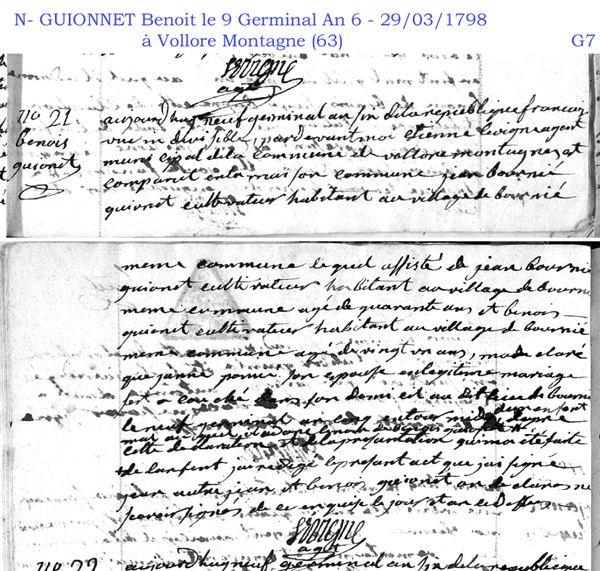 N- GUIONNET Benoit le 9 Germinal An 6 - 29/03/1798
à Vollore Montagne (63)
G7
agt
no 21
benois
guionet
aujourd'huy neuf germinal an six de la republique francoi
une indivisible pardevant moi etienne agent
municipal de la commune de vollore montagne est
comparut en la maison commune jean bournié
guionet cultivateur habitant au village de bournié
meme commune lequel assisté de jean bournie
guionet cultivateur habitant au village de bournie
meme commune agé de quarante ans et benois
guionet cultivateur habitant au village de bournie
meme commune agé de vingt un ans, ma declaré
que janne son epouse en legitime mariage
est acouchée dans son domi est au dit lieu de bournie
le neuf du
male au quel il a donné le de benois
cette declaration et la presentation qui m'a eté faite
de l'anfent j'ai redigé le presant act que j'ai signé
jean autre jean et benois guionet on declarés ne
savoir signer, de ce enquis le jour et an
agt
no 22
aujourd'huy neuf germinal an six de la republique